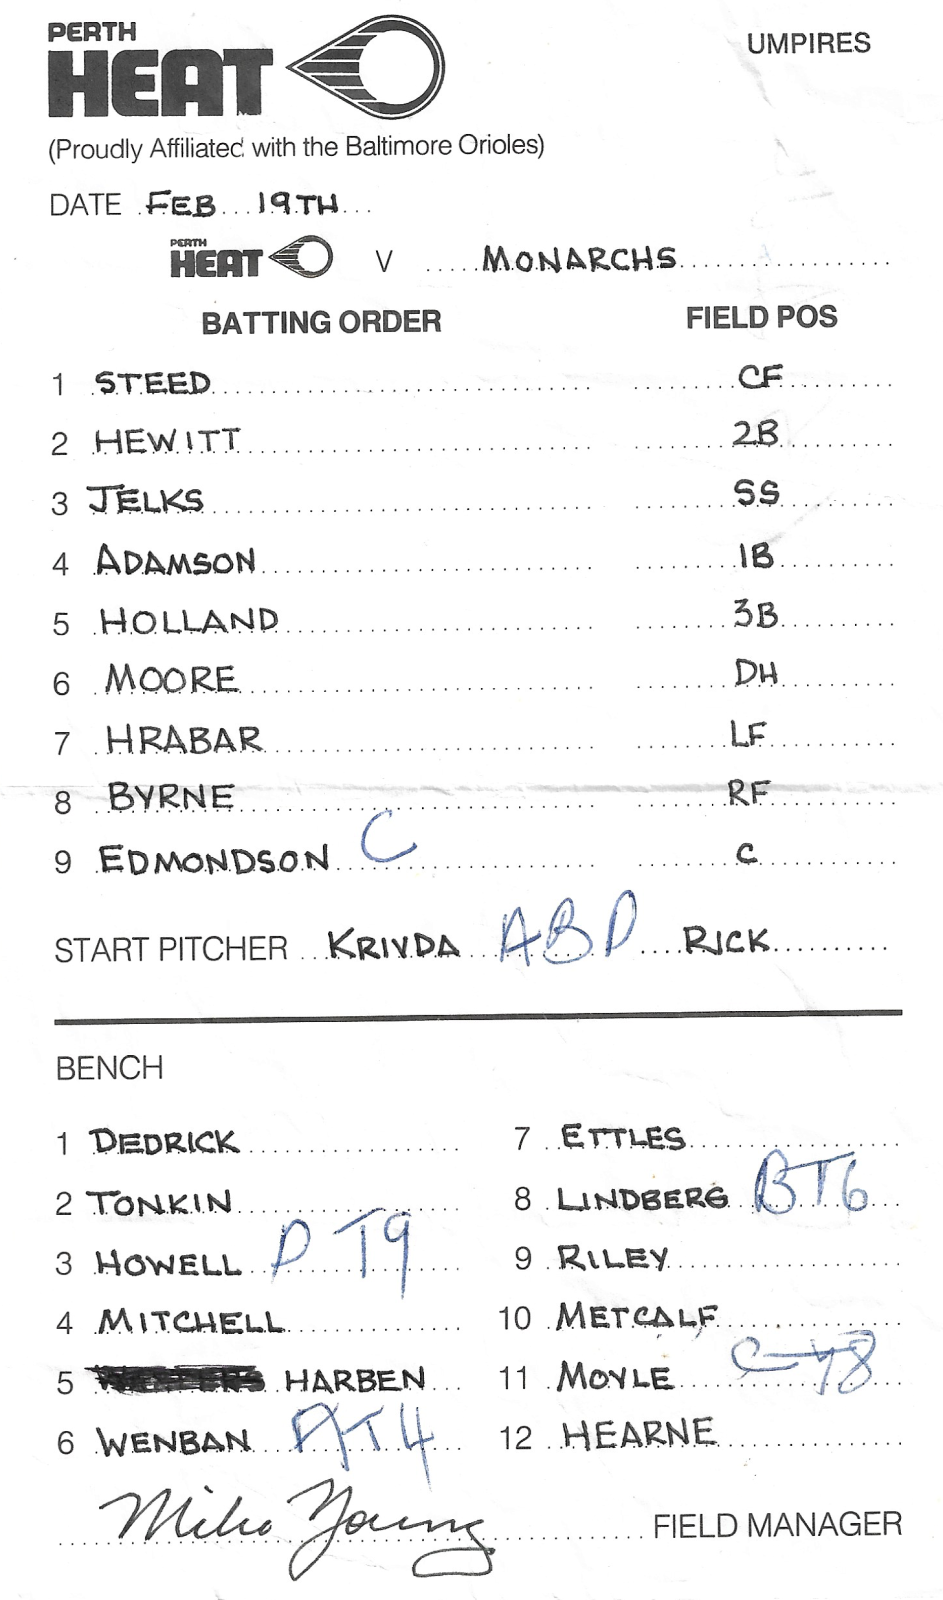 PERTH
HEAT
UMPIRES
(Proudly Affiliated with the Baltimore Orioles)
DATE FEB 19TH
PERTH HEAT V MONARCHS
BATTING ORDER FIELD POS
1 STEED CF
2 HEWITT 2B
3 JELKS SS
4 ADAMSON 1B
5 HOLLAND 3B
6 MOORE DH
7 HRABAR LF
8 BYRNE RF
9 EDMONDSON C C
START PITCHER KRIVDA ABD RICK
BENCH
1 DEDRICK 7 ETTLES
2 TONKIN 8 LINDBERG BT6
3 HOWELL D T9 9 RILEY
4 MITCHELL 10 METCALF
5 HARBEN 11 MOYLE
6 WENBAN AT4 12 HEARNE
Mike Young FIELD MANAGER